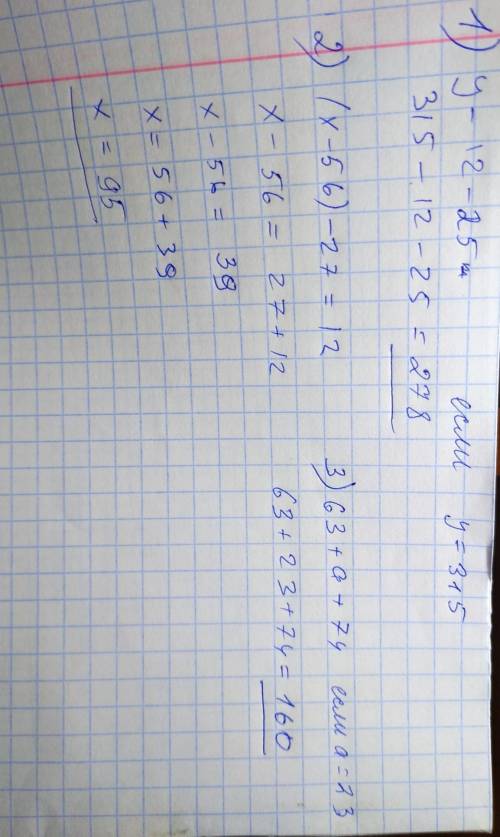 1) y - 12 - 25 если y = 315
315 - 12 - 25 = 278
2) (x - 56) - 27 = 12
x - 56 = 27 + 12
x - 56 = 39
x = 56 + 39
x = 95
3) 63 + a + 74 если a = 23
63 + 23 + 74 = 160